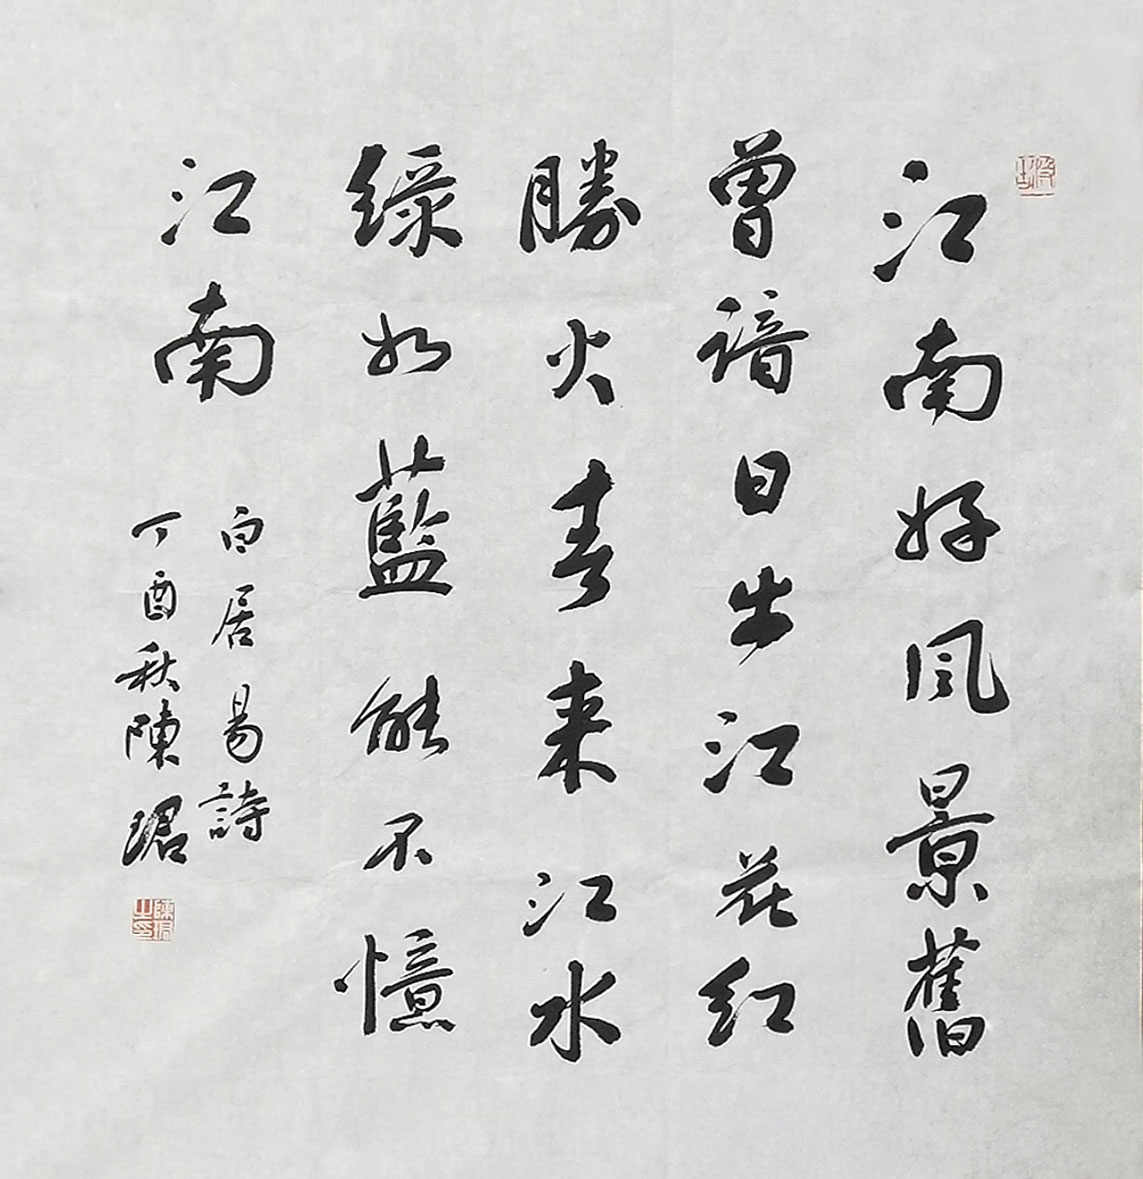 江南好风景舊
曾諳日出江花红
勝火春来江水
绿如藍能不憶
江南
白居易詩
丁酉秋陳珺
陳珺之印